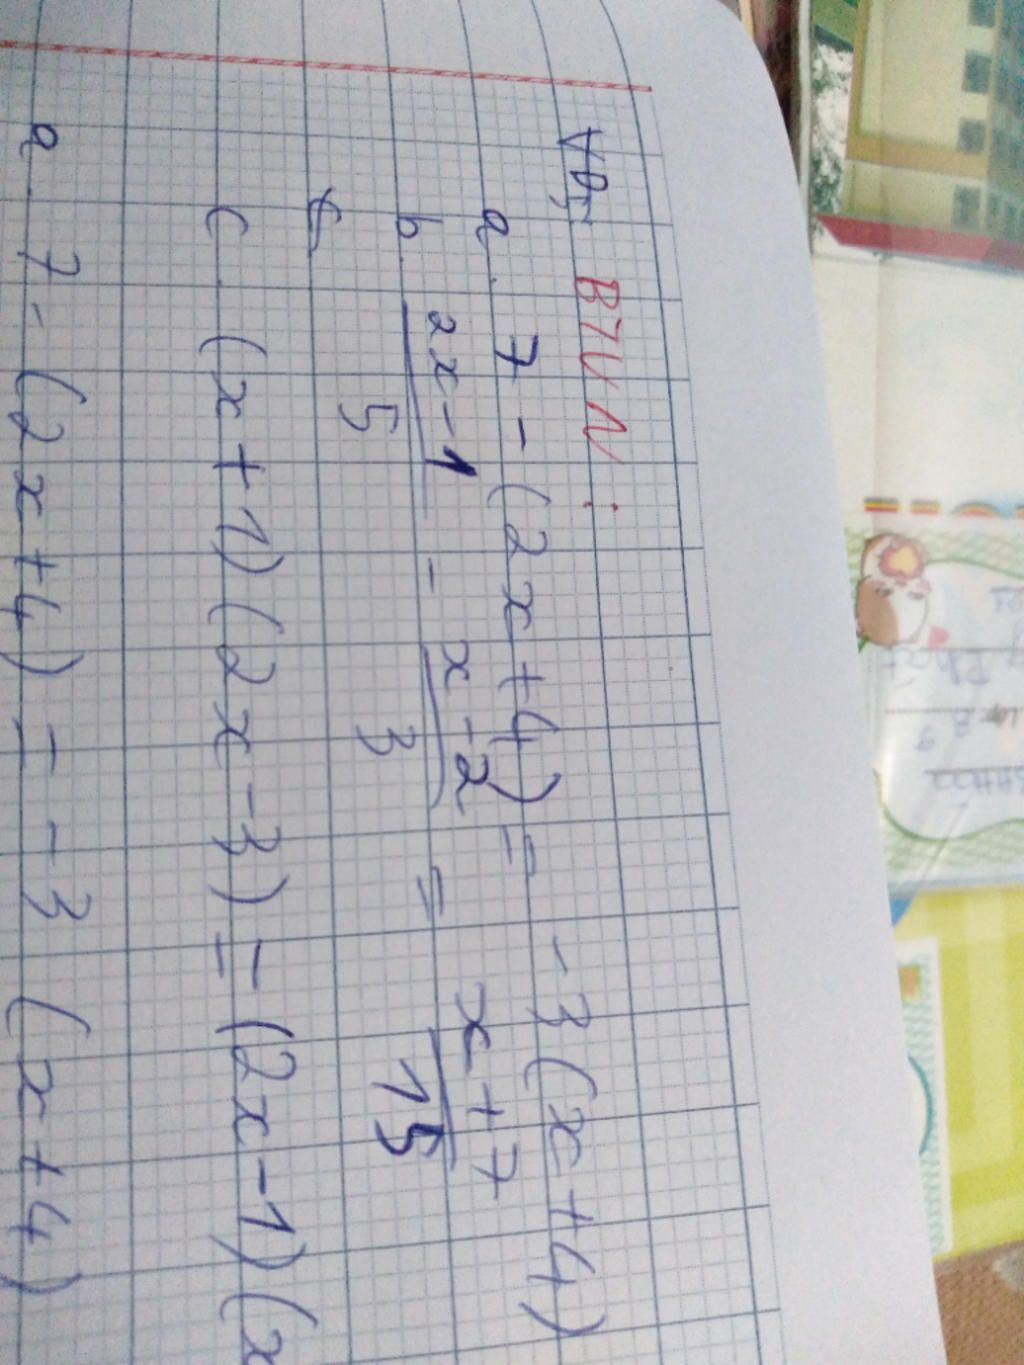 BTVN:
a. 7 - (2x+4) = -3(x+4)
b. (2x-1)/5 - (x-2)/3 = (x+7)/15
c. (x+1)(2x-3) = (2x-1)(x
a. 7 - (2x+4) = -3 (x+4)